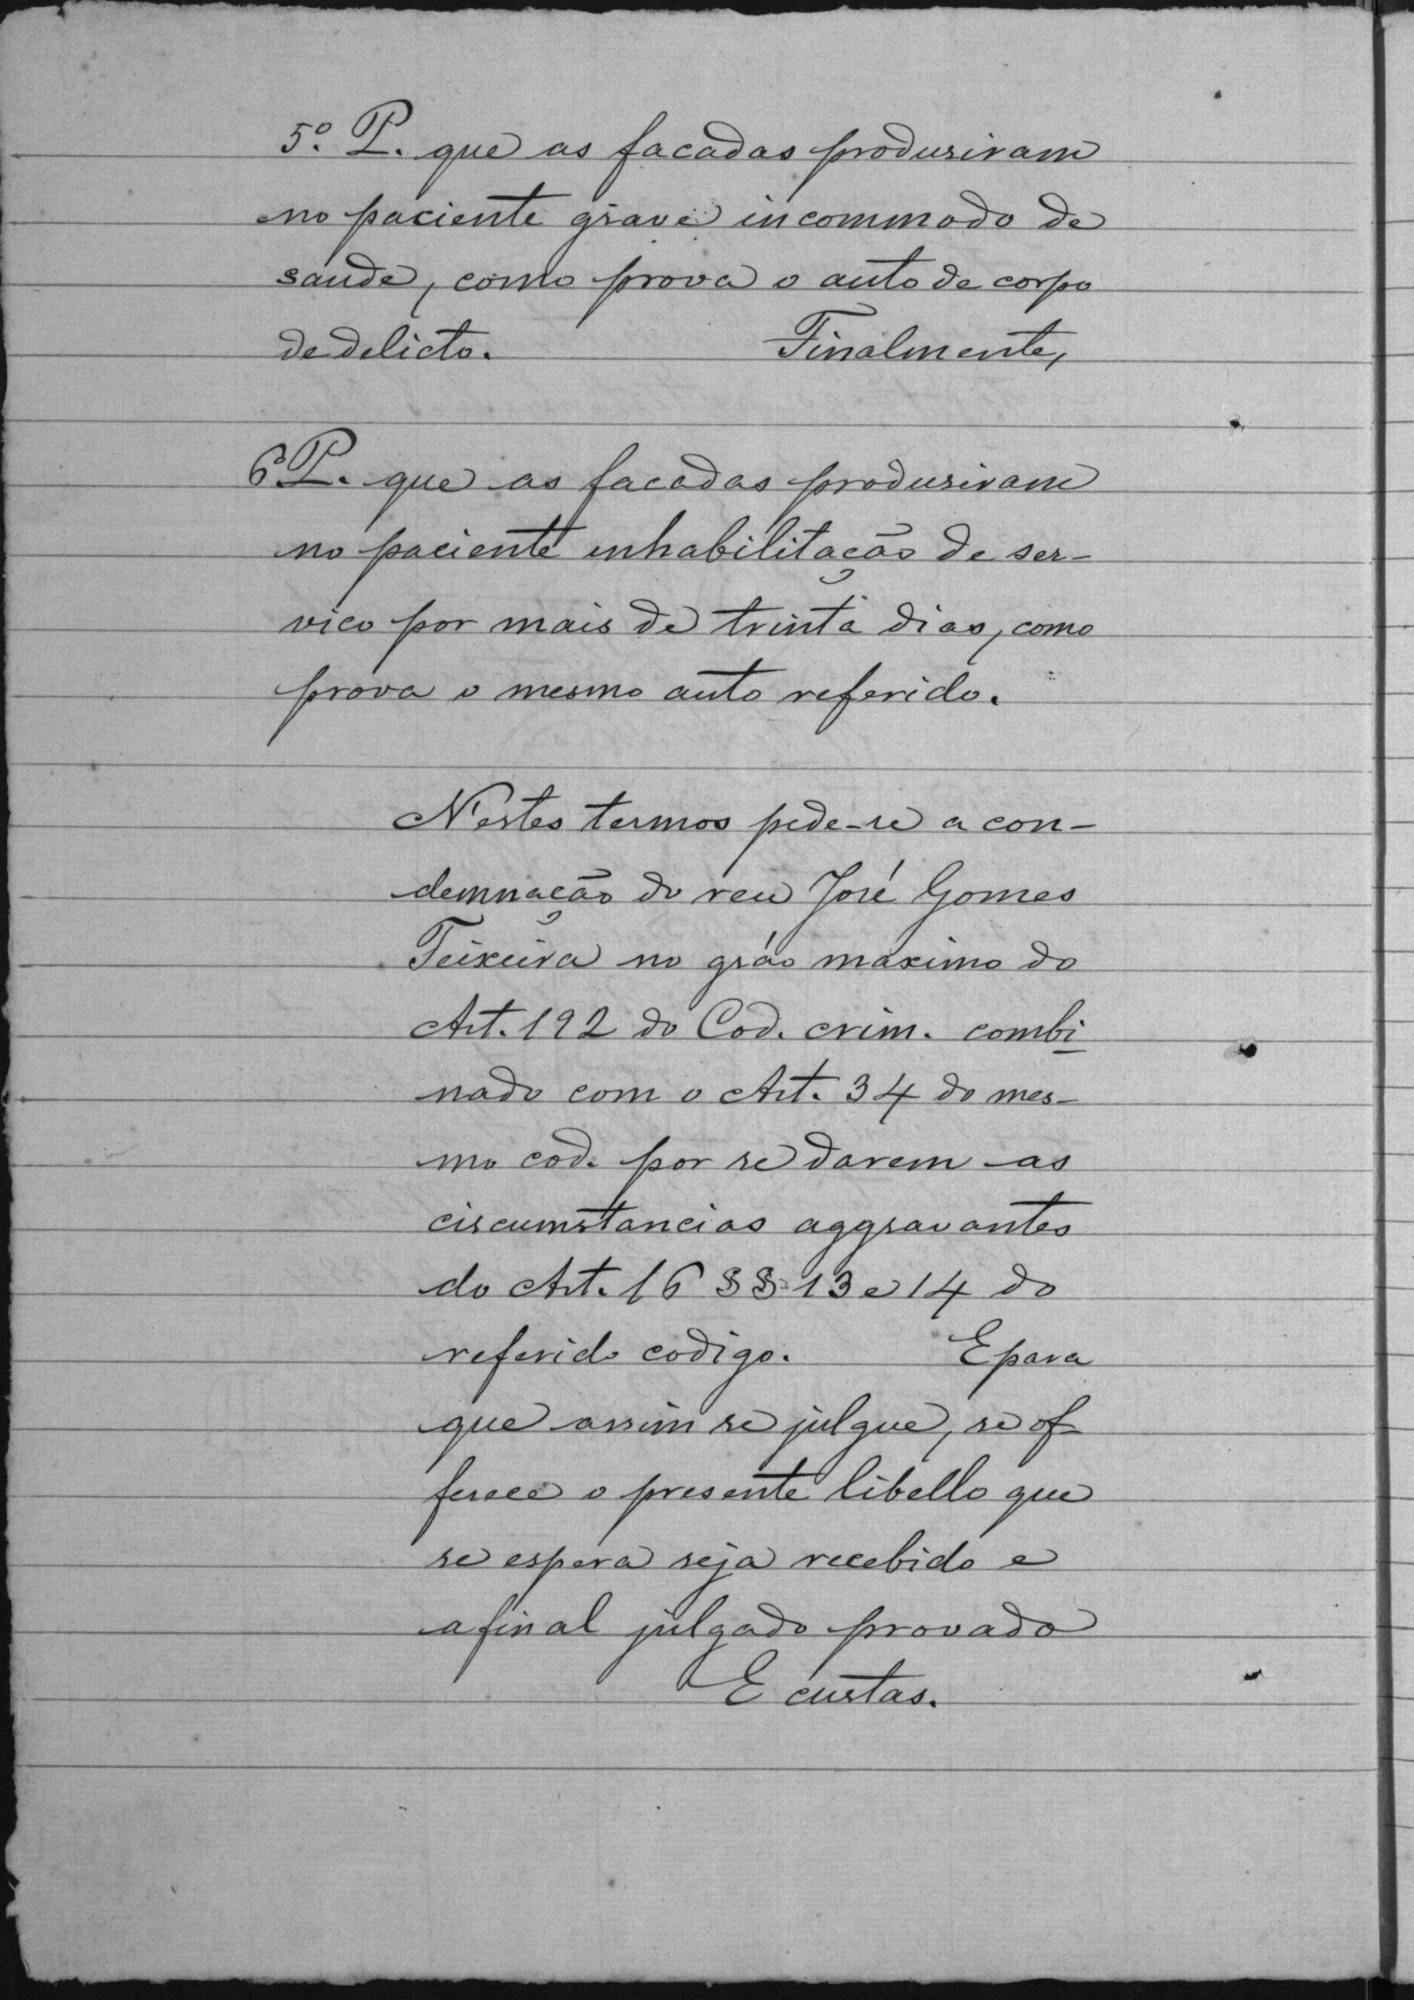 5.º P. que as facadas produsiram
no paciente grave incommodo de
saude, como prova o auto de corpo
de delicto. Finalmente,
6º P. que as facadas produsiram
no paciente inhabilitação de ser-
vico por mais de trinta dias, como
prova o mesmo auto referido.
N'estes termos pede-se a con-
demnação do reu José Gomes
Teixeira no gráo maximo do
Art. 192 do Cod. crim. combi
nado com o Art. 34 do mes-
mo cod. por se darem as
circumstancias aggravantes
do Art. 16 §§ 13 e 14 do
referido codigo. E para
que assim se julgue, se of-
ferece o presente libello que
se espera seja recebido e
afinal julgado provado
E custas.